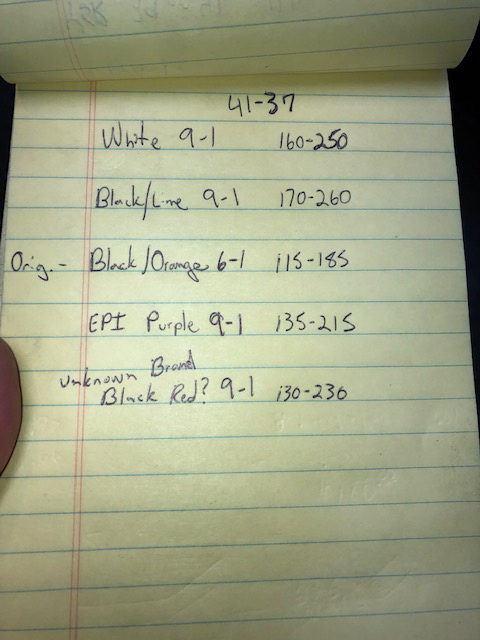 41-37
White 9-1 160-250
Black/Lime 9-1 170-260
Orig. - Black/Orange 6-1 115-185
EPI Purple 9-1 135-215
unknown Brand
Black Red? 9-1 130-230